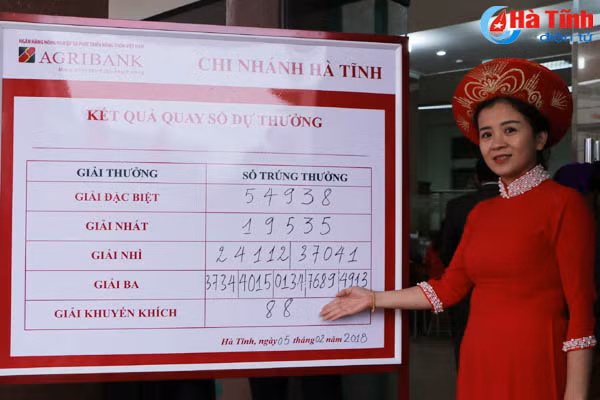 Hà Tĩnh
điện tử
NGÂN HÀNG NÔNG NGHIỆP VÀ PHÁT TRIỂN NÔNG THÔN VIỆT NAM
AGRIBANK
CHI NHÁNH HÀ TĨNH
KẾT QUẢ QUAY SỐ DỰ THƯỞNG
GIẢI THƯỞNG SỐ TRÚNG THƯỞNG
GIẢI ĐẶC BIỆT 54938
GIẢI NHẤT 19535
GIẢI NHÌ 24112 37041
GIẢI BA 3734 4015 0134 7689 4913
GIẢI KHUYẾN KHÍCH 88
Hà Tĩnh, ngày 05 tháng 02 năm 2018